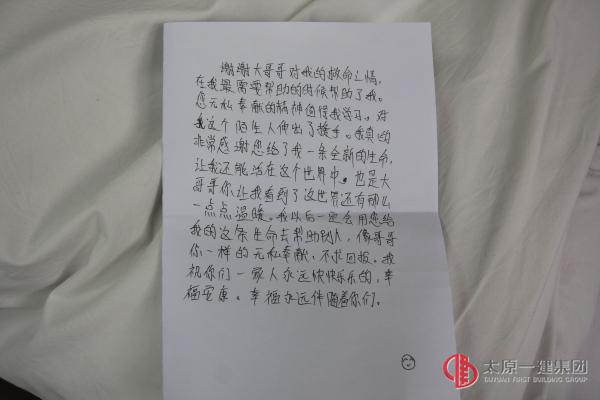 谢谢大哥哥对我的救命之情,
在我最需要帮助的时候帮助了我。
您无私奉献的精神值得我学习,对
我这个陌生人伸出了援手。我真的
非常感谢您给了我一条全新的生命,
让我还能活在这个世界中。也是大
哥哥你让我看到了这世界还有那么
一点点温暖。我以后一定会用您给
我的这条生命去帮助别人,像哥哥
你一样的无私奉献,不求回报。我
祝你们一家人永远快快乐乐的,幸
福安康。幸福永远伴随着你们。
太原一建集团
TAIYUAN FIRST BUILDING GROUP